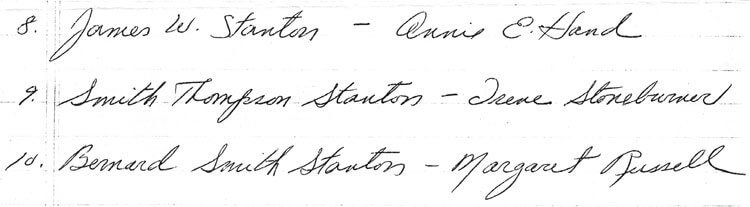 8. James W. Stanton - Annie E. Hand
9. Smith Thompson Stanton - Irene Stoneburner
10. Bernard Smith Stanton - Margaret Russell